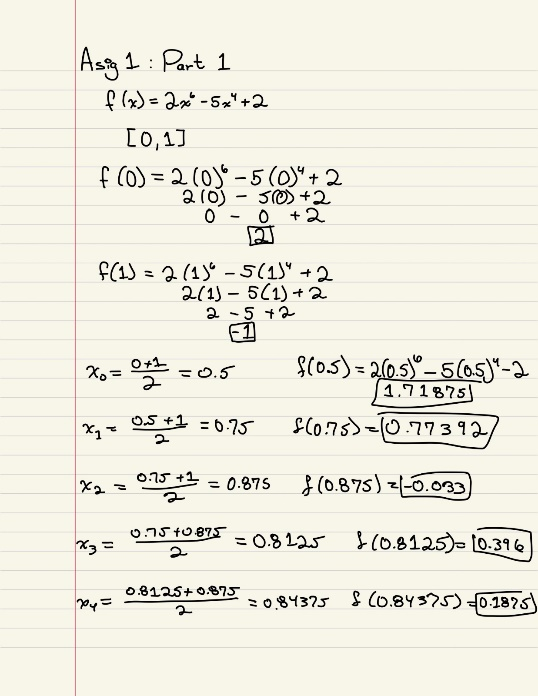 Asig 1 : Part 1
f(x) = 2x⁶ - 5x⁴ + 2
[0,1]
f(0) = 2(0)⁶ - 5(0)⁴ + 2
2(0) - 5(0) + 2
0 - 0 + 2
2
f(1) = 2(1)⁶ - 5(1)⁴ + 2
2(1) - 5(1) + 2
2 - 5 + 2
-1
x₀ = (0+1)/2 = 0.5 f(0.5) = 2(0.5)⁶ - 5(0.5)⁴ - 2
1.71875
x₁ = (0.5+1)/2 = 0.75 f(0.75) = 0.77392
x₂ = (0.75+1)/2 = 0.875 f(0.875) = -0.033
x₃ = (0.75+0.875)/2 = 0.8125 f(0.8125) = 0.396
x₄ = (0.8125+0.875)/2 = 0.84375 f(0.84375) = 0.1875